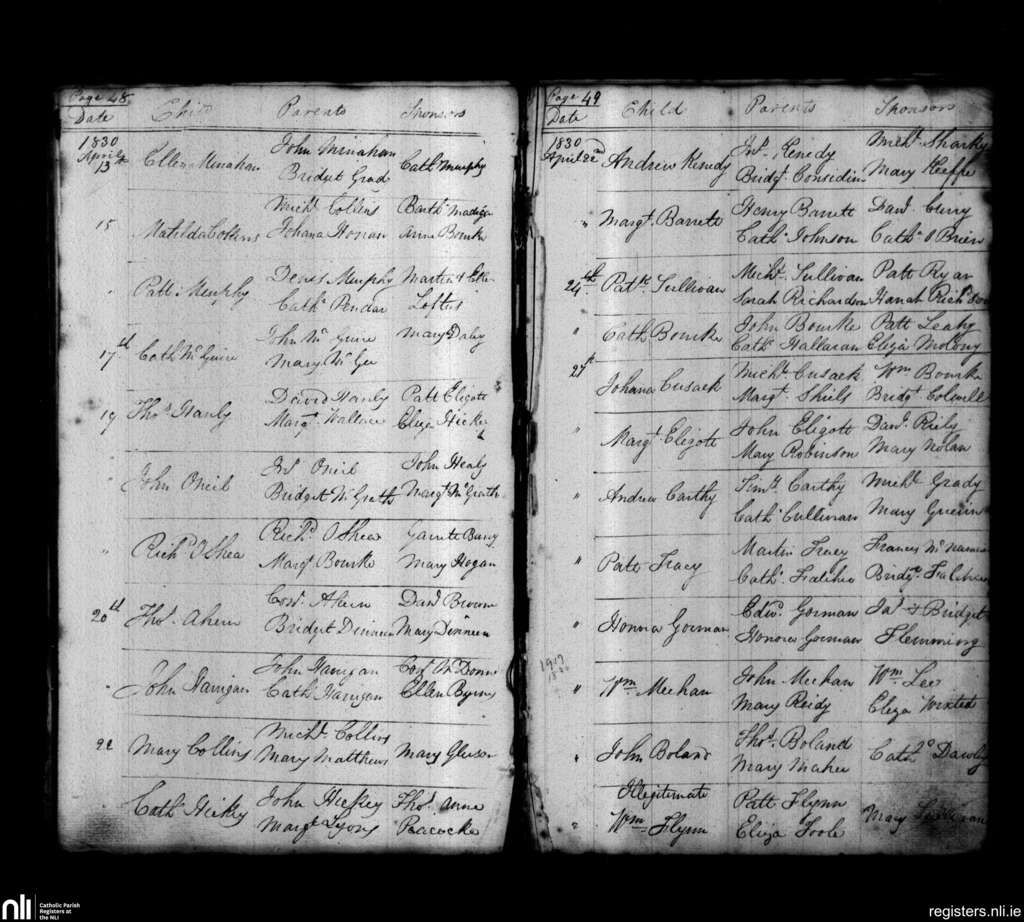 Page 48
Date Child Parents Sponsors
1830
April 13 Ellen Minahan John Minahan Cath Murphy
Bridget Grad
15 Matilda Collins Michl Collins Barthw Madigan
Johana Honan Anne Bourke
" Patt Murphy Denis Murphy Martin &
Cath Pendar Loftus
17th Cath McGuire John McGuire Mary Daly
Mary McGee
19 Thos Hanly David Hanly Patt Eligott
Margt Wallace Eliza Hickey
" John Oneil Jno Oneil John Healy
Bridget McGrath Margt McGrath
" Richd OShea Richd OShea Garrett Barry
Margt Bourke Mary Hogan
20th Thos Ahern Corns Ahern Danl Brown
Bridget Dinneen Mary Dinneen
" John Harrigan John Harrigan Cors McDonn
Cath Harrigan Ellen Byrns
22 Mary Collins Michl Collins Mary Gleeson
Mary Matthews
Cath Hickey John Hickey Thos Anne
Margt Lyons Peacocke
Page 49
Date Child Parents Sponsors
1830
April 22nd Andrew Kenedy Jno Kenedy Michl Sharky
Bridgt Considin Mary Keeffe
" Margt Barrett Henry Barrett Danl Curry
Cath Johnson Cath OBrien
24th Patk Sullivan Michl Sullivan Patt Ryan
Sarah Richardson Hanah Richdson
" Cath Bourke John Bourke Patt Leahy
Cath Hallaran Eliza Molony
27th Johana Cusack Michl Cusack Wm Bourke
Margt Shiels Bridgt Colwell
" Margt Eligott John Eligott Danl Riely
Mary Robinson Mary Nolan
" Andrew Carthy Timy Carthy Michl Grady
Cath Cullinan Mary Guerin
" Patt Tracy Martin Tracy Francis McNamara
Cath Bridgt
" Honora Gorman Edwd Gorman Jas & Bridget
Honora Gorman Flemming
1919
" Wm Meehan John Meehan Wm Lee
Mary Reidy Eliza Wixted
" John Boland Thos Boland Cath Dawly
Mary Maher
Illegitimate
" Wm Flynn Patt Flynn Mary
Eliza Toole
nli Catholic Parish
Registers at
the NLI
registers.nli.ie